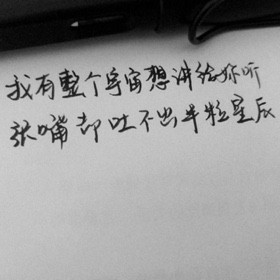 我有整个宇宙想讲给你听
张嘴却吐不出半粒星辰